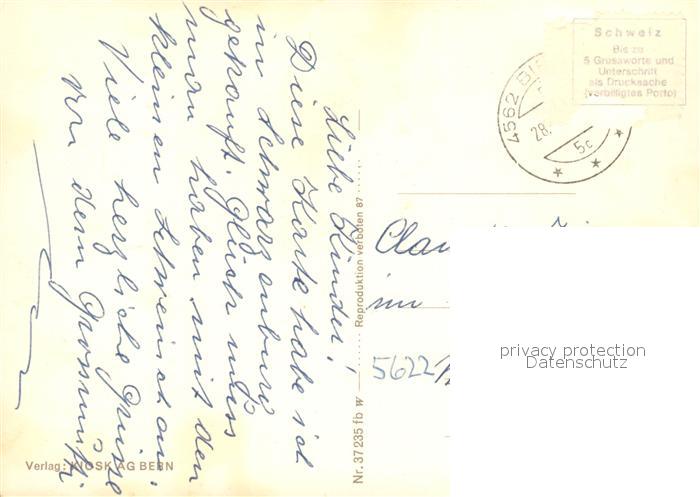 Liebe Kinder!
Diese Karte habe ich
in Schwarzenburg
gekauft. Glück muss
man haben mit den
kleinen Schweinchen.
Viele herzliche Grüsse
von dem Grossmutti
Verlag: KIOSK AG BERN
Nr. 37 235 fb w
Reproduktion verboten 87
Schweiz
Bis zu
5 Grussworte und
Unterschrift
als Drucksache
(verbilligtes Porto)
4562 BI
28.
5c
im
5622
privacy protection
Datenschutz